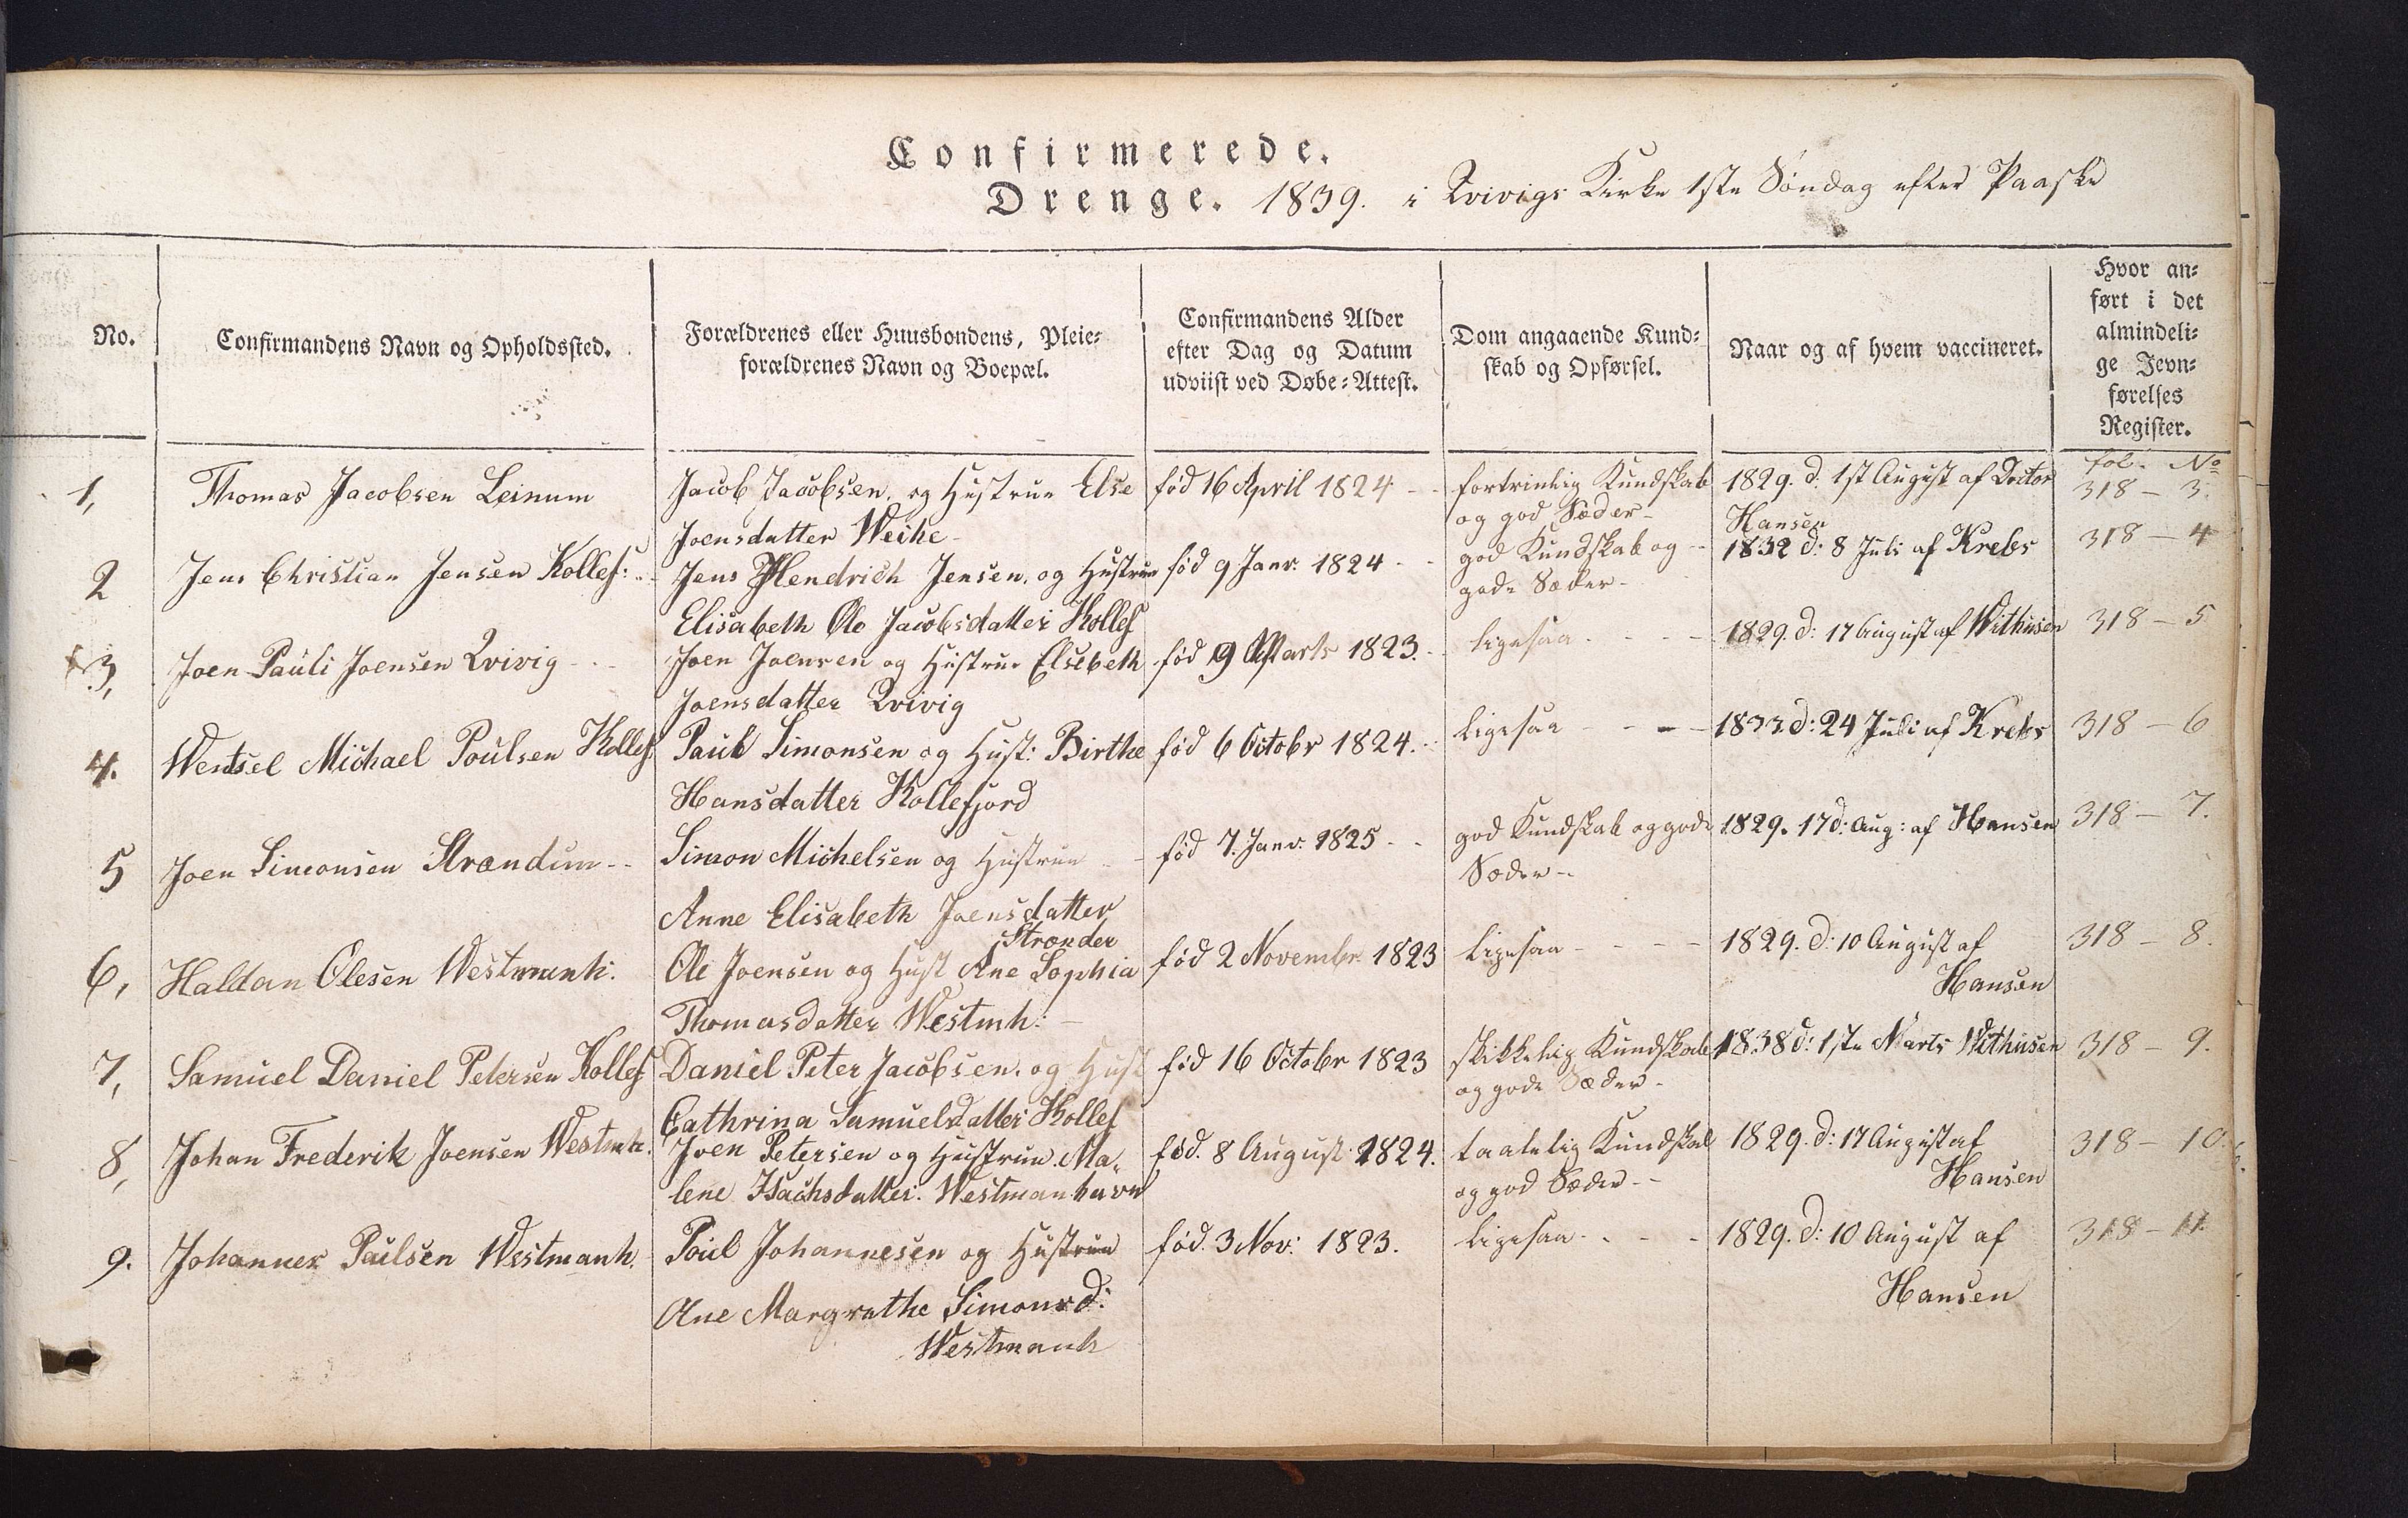 Confirmerede.
Drenge. 1839. i Qvivigs Kirke 1ste Söndag efter Paaske
No.
Confirmandens Navn og Opholdssted.
Forældrenes eller Huusbondens, Pleie-
forældrenes Navn og Boepæl.
Confirmandens Alder
efter Dag og Datum
udviist ved Døbe-Attest.
Dom angaaende Kund-
skab og Opførsel.
Naar og af hvem vaccineret.
Hvor an-
ført i det
almindeli-
ge Jevn-
førelses
Register.
fol. No
1, Thomas Jacobsen Leinum
Jacob Jacobsen. og Hustrue Else
Joensdatter Weihe
fød 16 April 1824
fortrinlig Kundskab
og god Sæder
1829. d: 1st August af Doctor
Hansen
318 - 3.
2 Jens Christian Jensen Kollef:
Jens Hendrich Jensen. og Hustrue
Elisabeth Ole Jacobsdatter Kollef
fød 9 Janr. 1824
god Kundskab og
gode Sæder
1832 d: 8 Juli af Krebs
318 - 4
3, Joen Pauli Joensen Qvivig
Joen Joensen og Hustrue Elsebeth
Joensdatter Qvivig
fød 9 Marts 1823.
ligesaa
1829. d: 17 August af Withusen
318 - 5
4. Wentsel Michael Poulsen Kollef
Paul Simonsen og Hust: Birthe
Hansdatter Kollefjord
fød 6 Octobr 1824.
ligesaa
1833 d: 24 Juli af Krebs
318 - 6
5 Joen Simonsen Strændum
Simon Michelsen og Hustrue
Anne Elisabeth Joensdatter
Strænder
fød 7. Janr. 1825
god Kundskab og gode
Sæder
1829. 17 d: Aug: af Hansen
318 - 7.
6, Haldan Olesen Westmanh:
Ole Joensen og Hust Ane Sophia
Thomasdatter Westmh:
fød 2 Novembr. 1823
ligesaa
1829. d: 10 August af
Hansen
318 - 8.
7, Samuel Daniel Petersen Kollef
Daniel Peter Jacobsen. og Hust
Cathrina Samuelsdatter Kollef
fød 16 Octobr 1823
skikkelig Kundskab
og gode Sæder
1838 d: 1ste Marts Withusen
318 - 9.
8, Johan Frederik Joensen Westmh.
Joen Petersen og Hustrue Ma-
lene Isachsdatter. Westmanhavn
fød. 8 August 1824.
taalelig Kundskab
og god Sæder
1829. d: 17 August af
Hansen
318 - 10.
9. Johannes Paulsen Westmanh.
Poul Johannesen og Hustrue
Ane Margrethe Simonsd:
Westmanh
fød. 3 Nov: 1823.
ligesaa
1829. d: 10 August af
Hansen
318 - 11